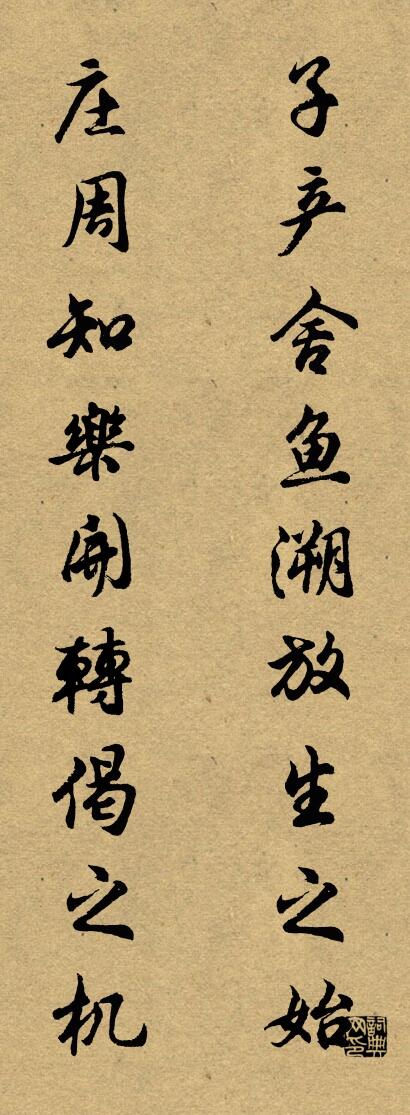 子产舍鱼溯放生之始
庄周知樂開轉偈之机
詞典网印